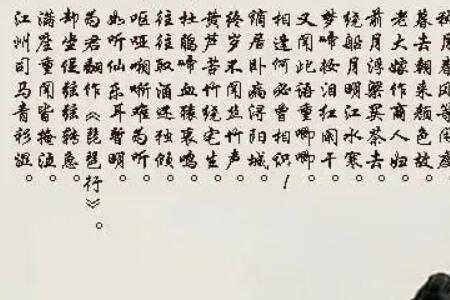 暮去朝来颜色故。
老大嫁作商人妇。
前月浮梁买茶去。
绕船月明江水寒。
梦啼妆泪红阑干。
又闻此语重唧唧。
相逢何必曾相识！
谪居卧病浔阳城。
终岁不闻丝竹声。
黄芦苦竹绕宅生。
杜鹃啼血猿哀鸣。
往往取酒还独倾。
呕哑嘲哳难为听。
如听仙乐耳暂明。
为君翻作《琵琶行》。
却坐促弦弦转急。
满座重闻皆掩泣。
江州司马青衫湿。